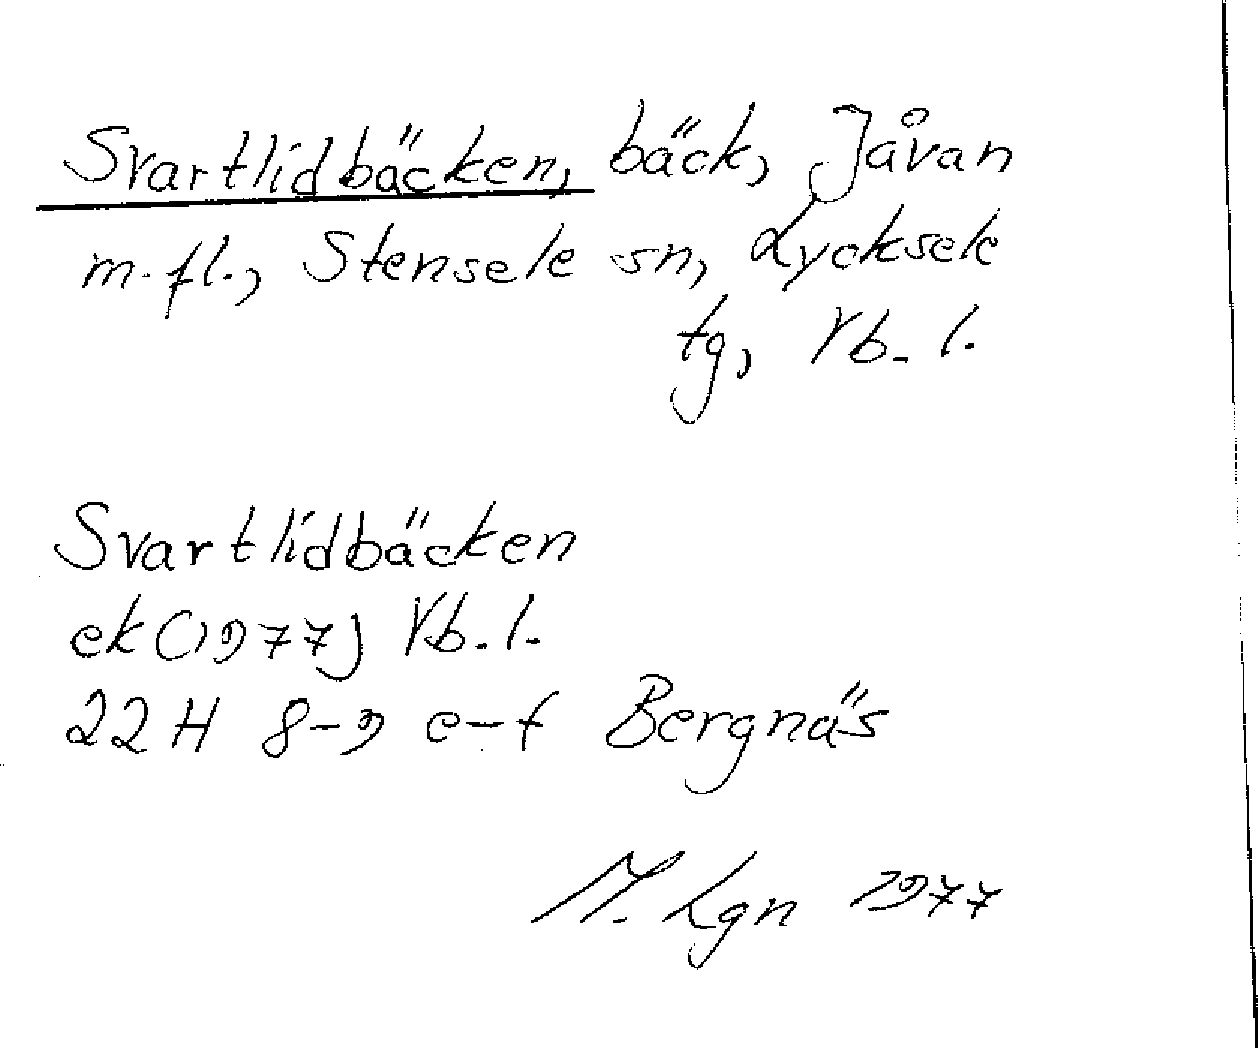 Svartlidbäcken, bäck, Jåvan
m.fl., Stensele sn, Lycksele
tg, Vb. l.
Svartlidbäcken
ek (1977) Vb. l.
22 H 8-9 e-f Bergnäs
M. Lgn 1977